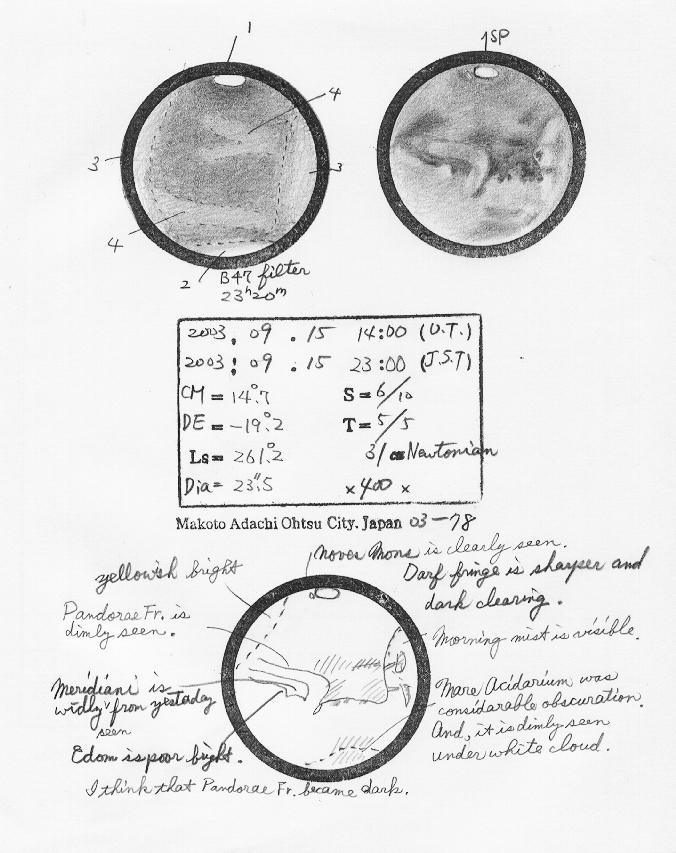 1
1SP
4
3
3
4
2
B47 filter
23h20m
2003. 09 . 15 14:00 (U.T.)
2003. 09 . 15 23:00 (J.S.T)
CM = 14°.7 S = 6/10
DE = -19°.2 T = 5/5
Ls = 261°.2 31 cm Newtonian
Dia = 23".5 × 400 ×
Makoto Adachi Ohtsu City. Japan 03-78
noves Mons is clearly seen.
yellowish bright
Darf fringe is sharper and
dark clearing.
Pandorae Fr. is
dimly seen.
Morning mist is visible.
Meridiani is
widly from yestaday
seen
Mare Acidarium was
considarable obscuration.
And, it is dimly seen
under white cloud.
Edom is poor bright.
I think that Pandorae Fr. became dark.